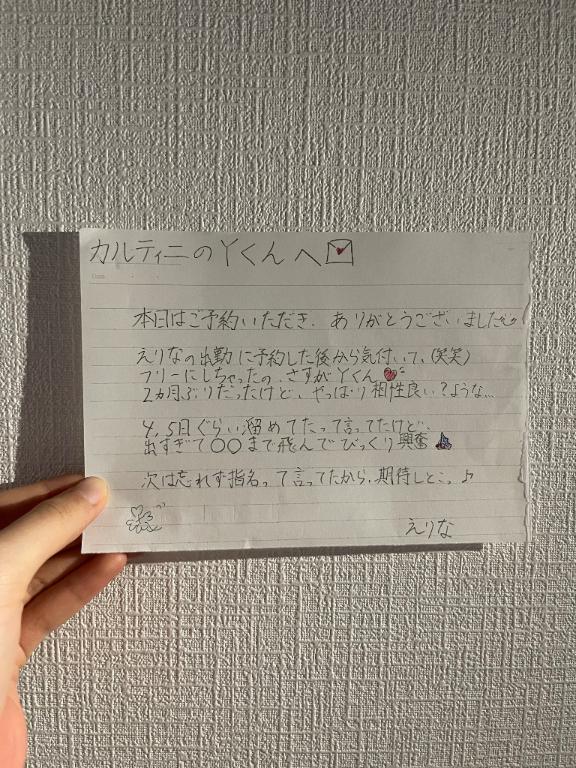 カルティニのYくんへ
本日はご予約いただき、ありがとうございました
えりなの出勤に予約した後から気付いて、(笑笑)
フリーにしちゃったの、さすがYくん
2ヵ月ぶりだったけど、やっぱり相性良い?ような...
4,5日ぐらい溜めてたって言ってたけど、
出すぎて〇〇まで飛んでびっくり興奮
次は忘れず指名って言ってたから、期待しとこっ♪
えりな